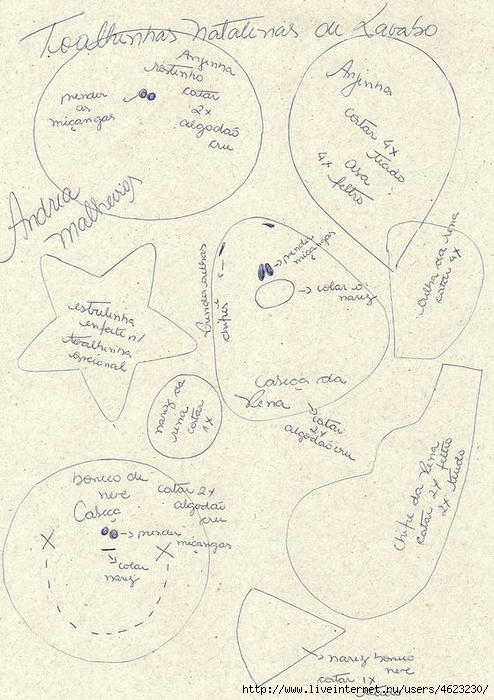 Toalhinhas natalinas de Lavabo
Anjinha
rostinho
cortar
2x
algodão
cru
prender
as
miçangas
Anjinha
cortar 4x
tecido
asa
4x feltro
Andria
Malheiros
orelha da rena
cortar 4x
Prender orelhas
e
chifres
prender
miçangas
colar o
nariz
Cabeça da
Rena
cortar
2x
algodão cru
estrelinha
enfeite p/
toalhinha
opcional
nariz da
rena
cortar
1x
Chifre da Rena
cortar 2x feltro
2x tecido
boneco de
neve
Cabeça
cortar 2x
algodão
cru
prender
miçangas
colar
nariz
nariz boneco
neve
cortar 1x
http://www.liveinternet.ru/users/4623230/